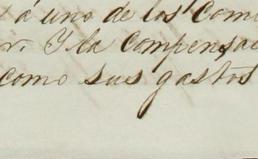 á uno de los Comi
r. Y la compensac
como sus gastos